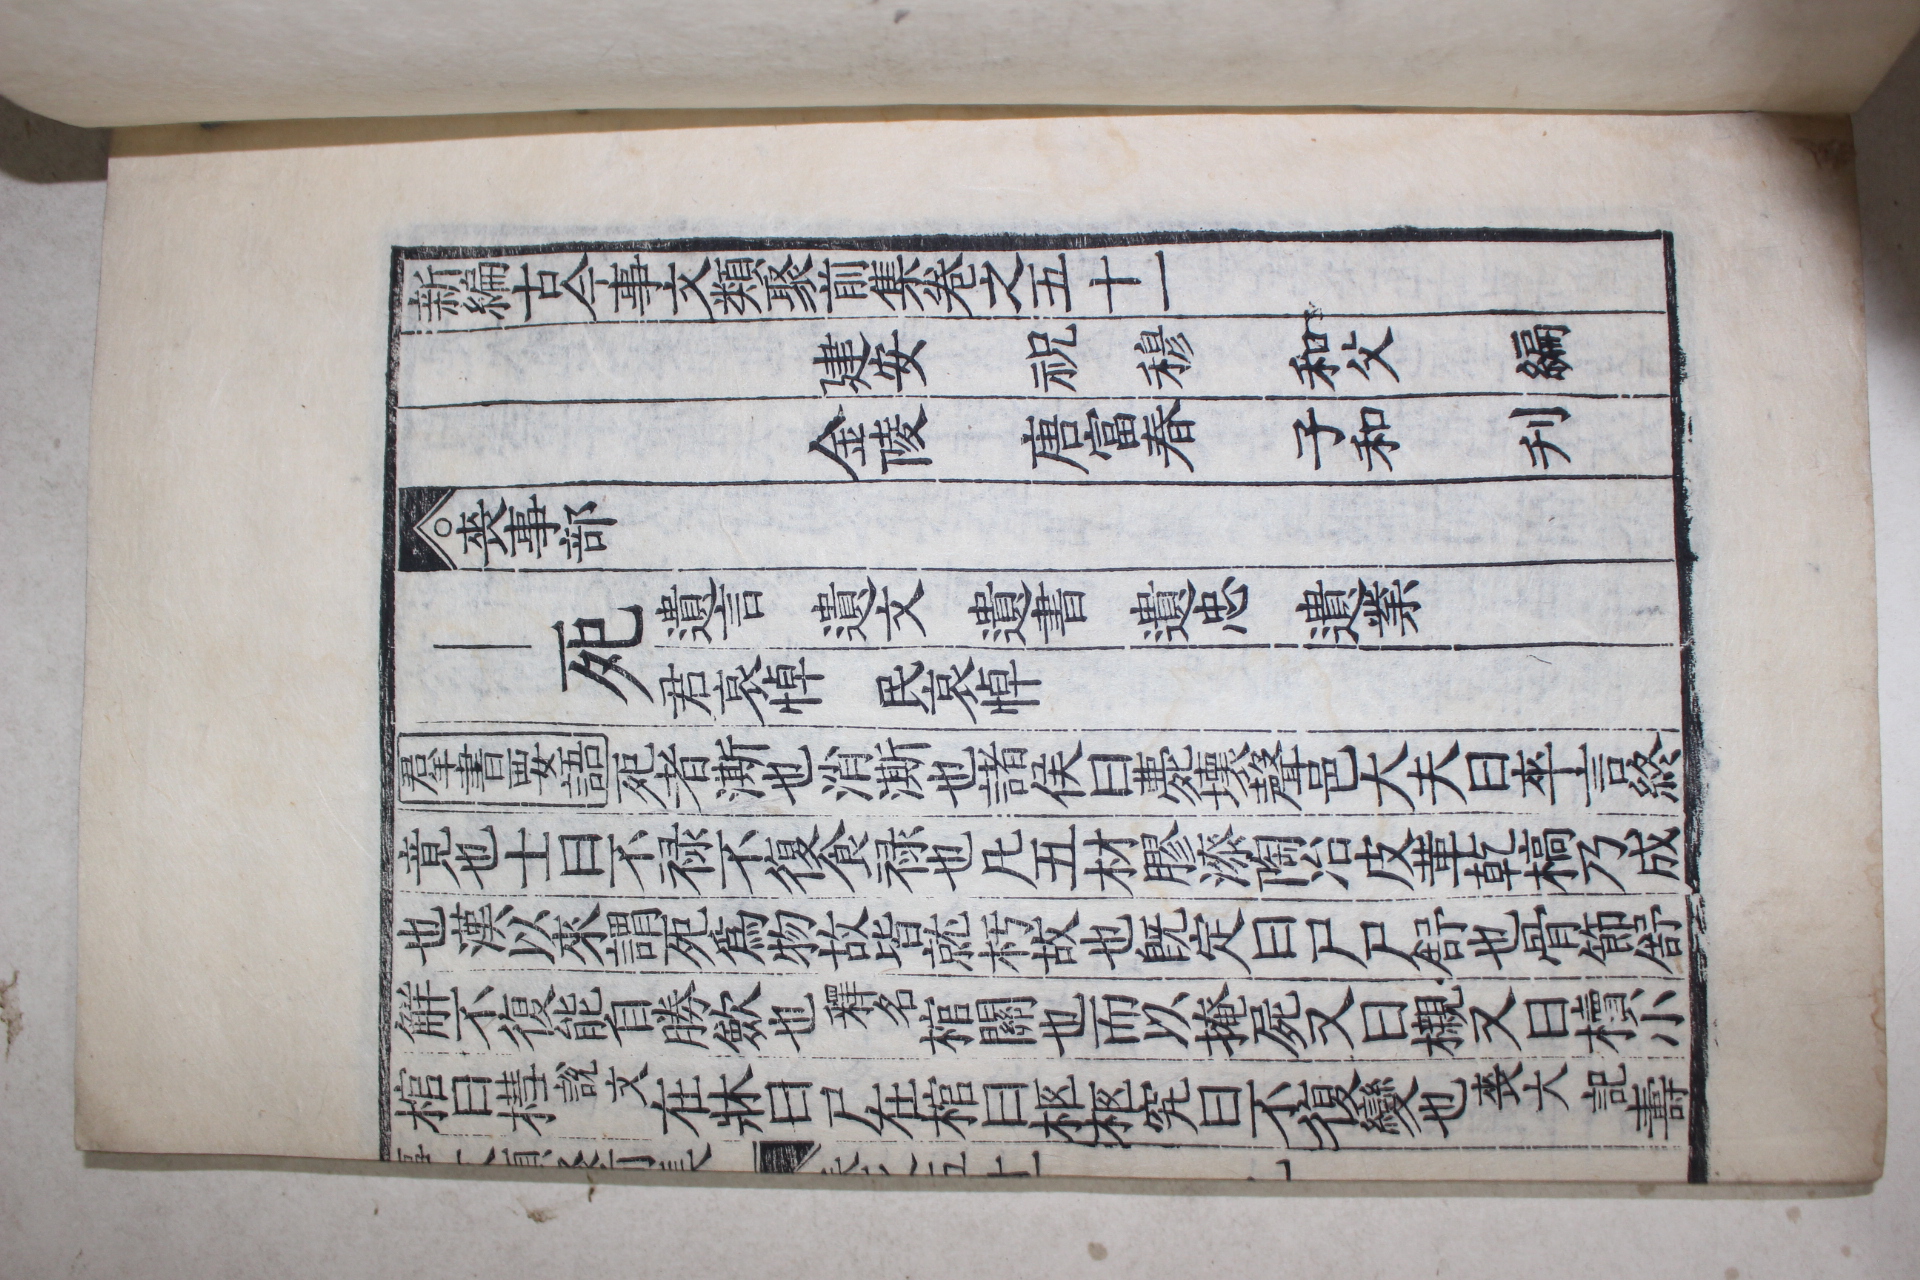 新編古今事文類聚前集卷之五十一
建安 祝穆 和父 編
金陵 唐富春 子和 刋
喪事部
死 遺言 遺文 遺書 遺忠 遺業
君哀悼 民哀悼
羣書要語 死者澌也消澌也諸侯曰薨薨壞聲也大夫曰卒言終
竟也士曰不祿不復食祿也凡五材膠漆陶冶皮革乾槁乃成
也漢以來謂死爲物故皆就朽故也旣定曰尸尸舒也骨節舒
解不復能自勝斂也 釋名 棺關也而以掩屍又曰櫬又曰櫝小
棺曰槥 說文 在牀曰尸在棺曰柩柩究曰不復變也 喪大記 壽